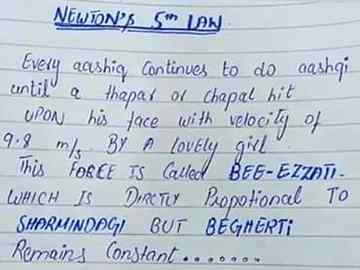 NEWTON'S 5TH LAN
Every aashiq Continues to do aashqi
until a thapar or chapal hit
UPON his face with velocity of
9.8 m/s. BY A LOVELY girl.
This FORCE IS Called BEE-EZZATI.
WHICH IS DIRCTLY PROPOTIONAL TO
SHARMINDAGI BUT BEGHERTI
Remains Constant.......